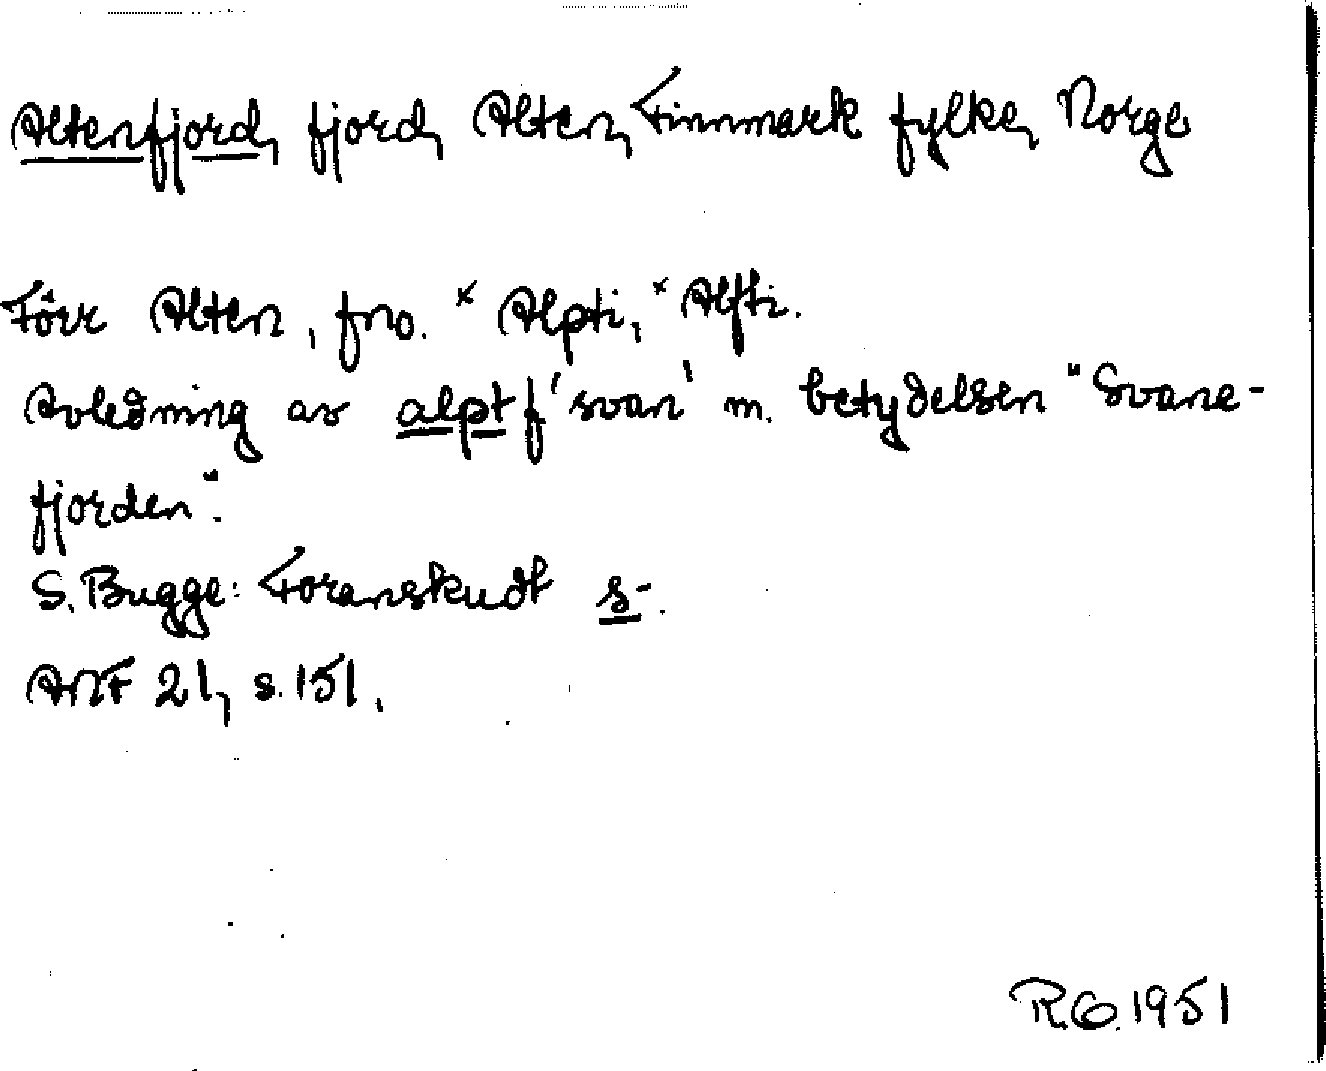 Altenfjord, fjord, Alten, Finnmark fylke, Norge
Förr Alten, fno. *Alpti, *Alfti.
Avledning av alpt f 'svan' m. betydelsen "Svane-
fjorden".
S. Bugge: Foranskudt s-.
ANF 21, s. 151.
R.G. 1951